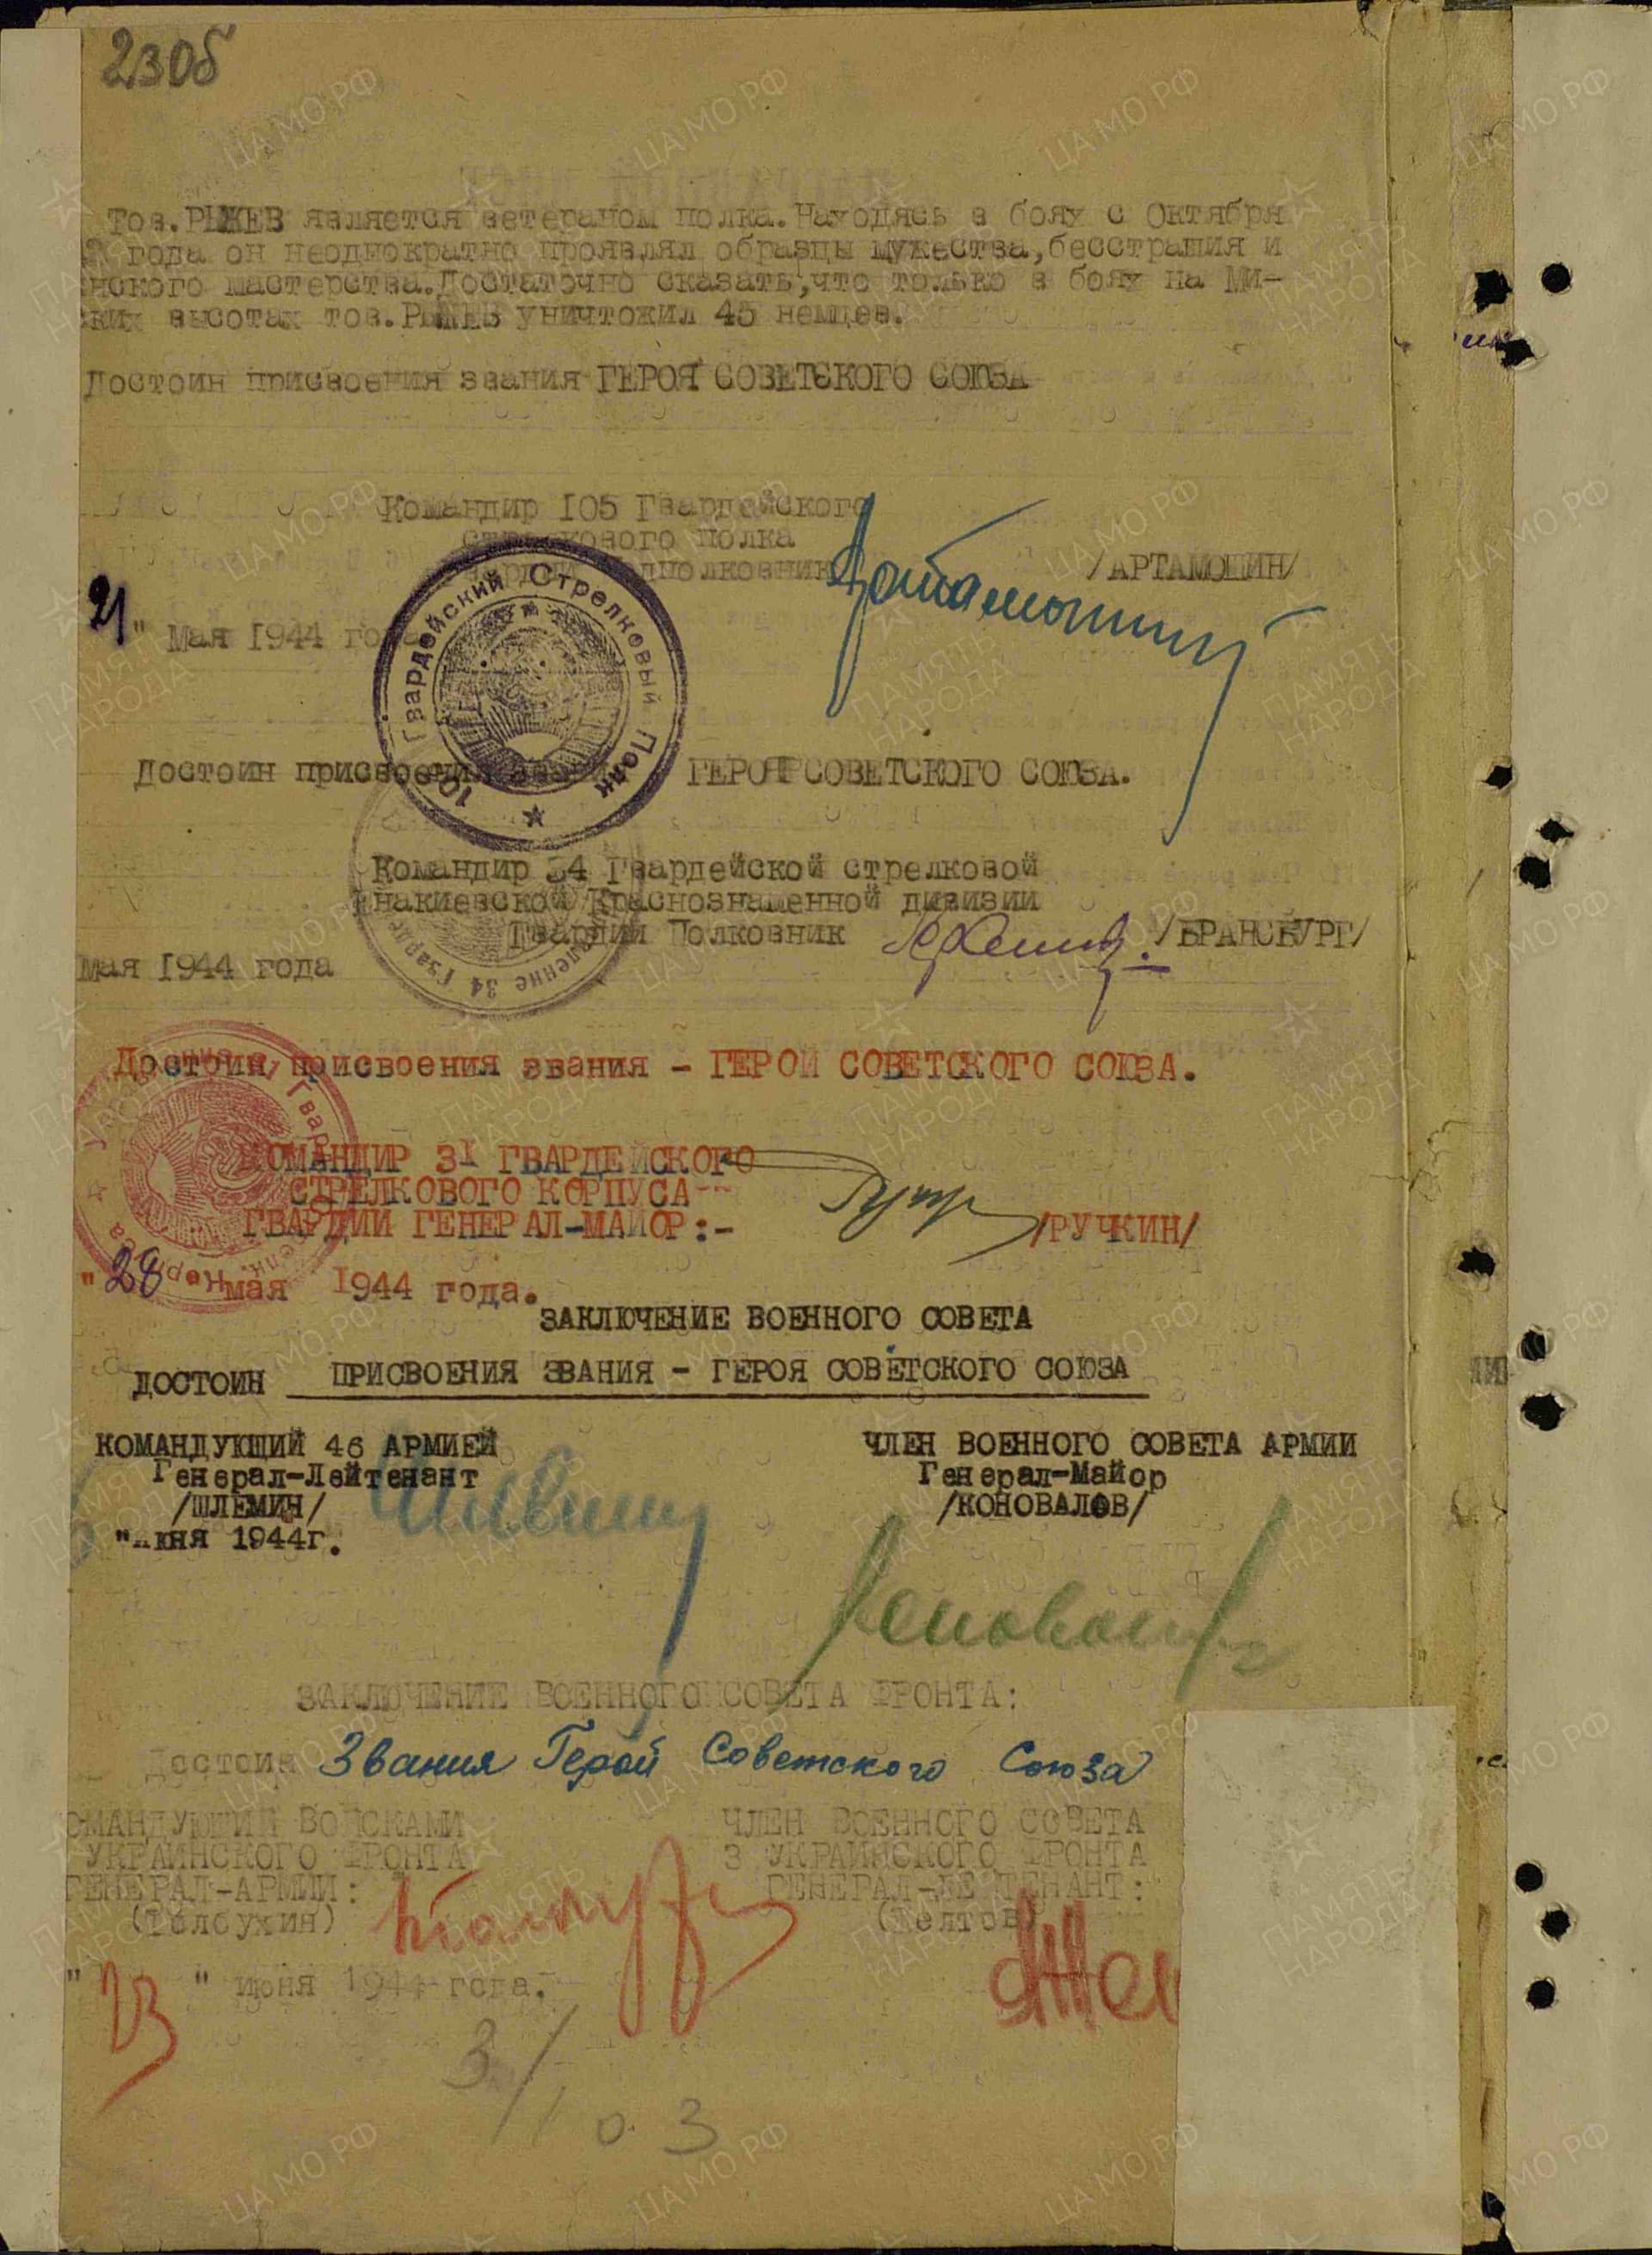 230б
Тов.РЫЖЕВ является ветераном полка.Находясь в боях с Октября
2 года он неоднократно проявлял образцы мужества,бесстрашия и
нского мастерства.Достаточно сказать,что только в боях на Ми-
ких высотах тов.РЫЖЕВ уничтожил 45 немцев.
Достоин присвоения звания ГЕРОЯ СОВЕТСКОГО СОЮЗА
Командир 105 Гвардейского
стрелкового полка
гвардии подполковник /АРТАМОШИН/
21 " Мая 1944 года
Гвардейский Стрелковый Полк
Достоин присвоения звания ГЕРОЯ СОВЕТСКОГО СОЮЗА.
Командир 34 Гвардейской стрелковой
Енакиевской Краснознаменной дивизии
Гвардии Полковник /БРАНСБУРГ/
мая 1944 года
Достоин присвоения звания - ГЕРОЙ СОВЕТСКОГО СОЮЗА.
КОМАНДИР 31 ГВАРДЕЙСКОГО
СТРЕЛКОВОГО КОРПУСА
ГВАРДИИ ГЕНЕРАЛ-МАЙОР:- /РУЧКИН/
"28" мая 1944 года.
ЗАКЛЮЧЕНИЕ ВОЕННОГО СОВЕТА
ДОСТОИН ПРИСВОЕНИЯ ЗВАНИЯ - ГЕРОЯ СОВЕТСКОГО СОЮЗА
КОМАНДУЮЩИЙ 46 АРМИЕЙ ЧЛЕН ВОЕННОГО СОВЕТА АРМИИ
Генерал-Лейтенант Генерал-Майор
/ШЛЕМИН/ /КОНОВАЛОВ/
" июня 1944г.
ЗАКЛЮЧЕНИЕ ВОЕННОГО СОВЕТА ФРОНТА:
Достоин Звания Герой Советского Союза
ОМАНДУЮЩИЙ ВОЙСКАМИ ЧЛЕН ВОЕННОГО СОВЕТА
УКРАИНСКОГО ФРОНТА 3 УКРАИНСКОГО ФРОНТА
ГЕНЕРАЛ-АРМИИ: ГЕНЕРАЛ-ЛЕЙТЕНАНТ:
(Толбухин) (Желтов)
" 23 " июня 1944 года.
ЦАМО РФ
ПАМЯТЬ НАРОДА